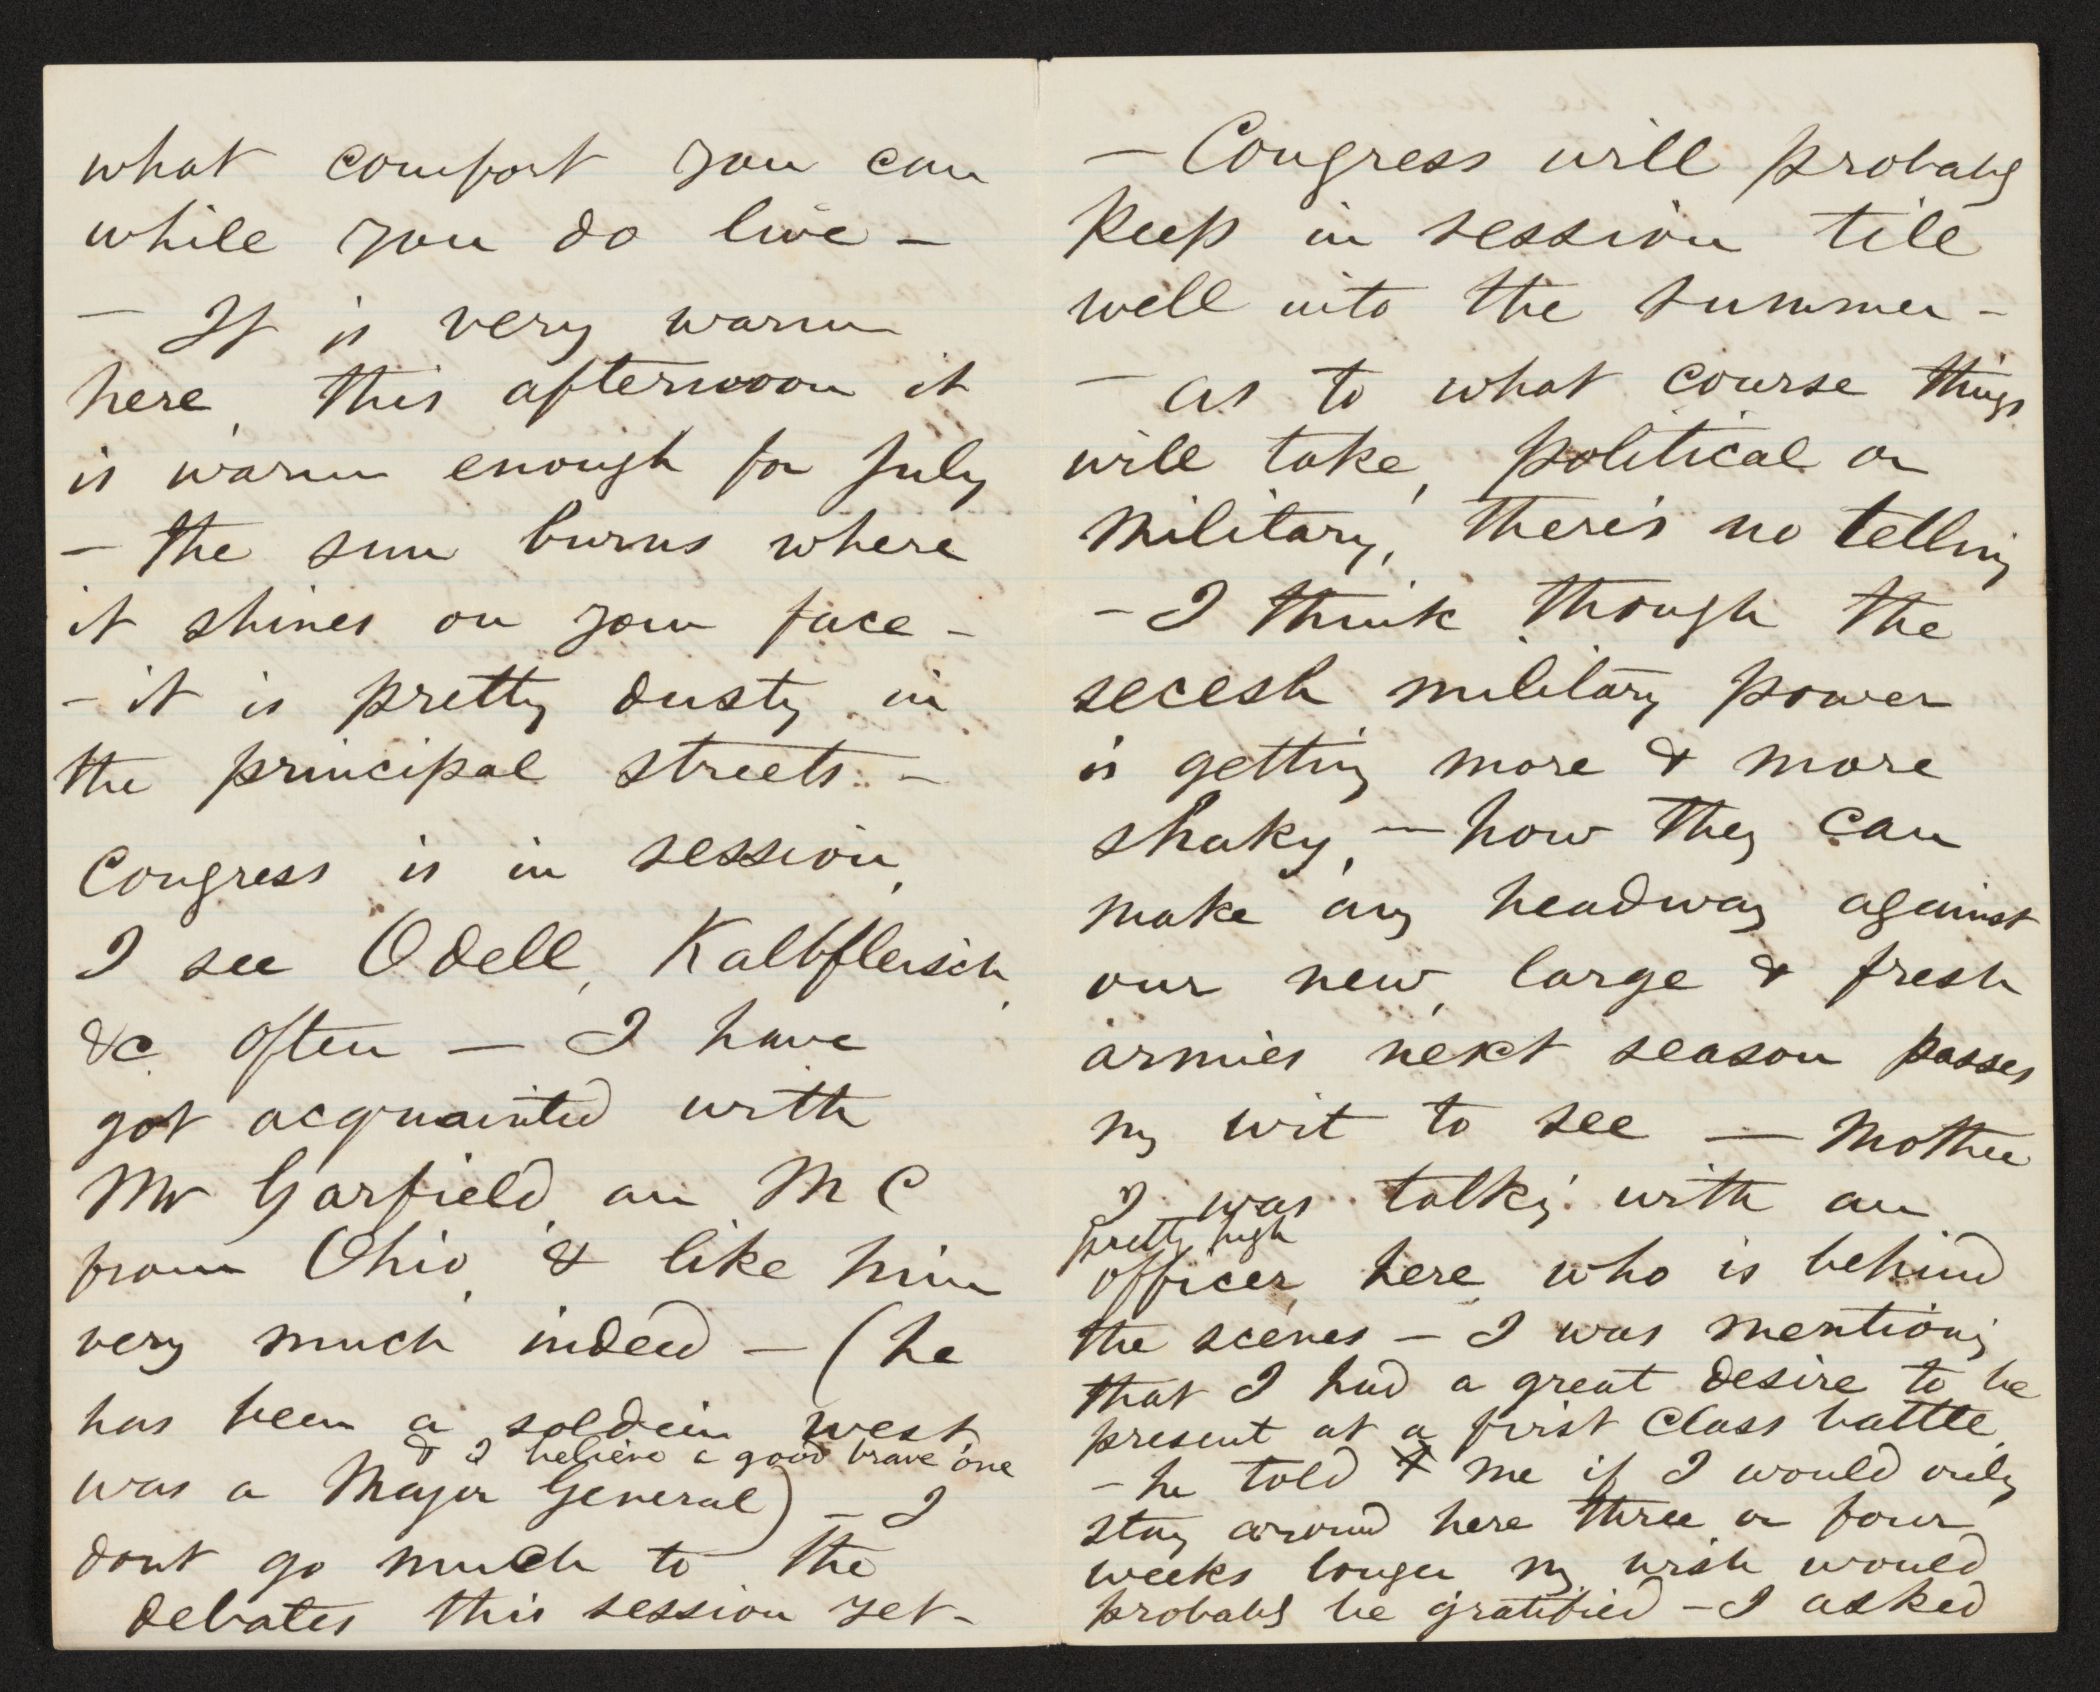 what comfort you can
while you do live –
– It is very warm
here, this afternoon it
is warm enough for July
– the sun burns where
it shines on your face –
– it is pretty dusty in
the principal streets. –
Congress is in session,
I see Odell, Kalbfleisch,
&c often – I have
got acquainted with
Mr Garfield, an M C
from Ohio, & like him
very much indeed – (he
has been a soldier west,
& I believe a good brave one
was a Major General) – I
dont go much to the
debates this session yet –
– Congress will probably
keep in session till
well into the summer –
– as to what course things
will take, political or
military, there's no telling
– I think, though, the
secesh military power
is getting more & more
shaky, – how they can
make any headway against
our new, large & fresh
armies next season passes
my wit to see — Mother
I was talking with an
pretty high
officer, here, who is behind
the scenes – I was mentioning
that I had a great desire to be
present at a first class battle.
– he told me if I would only
stay around here three or four
weeks longer my wish would
probably be gratified – I asked